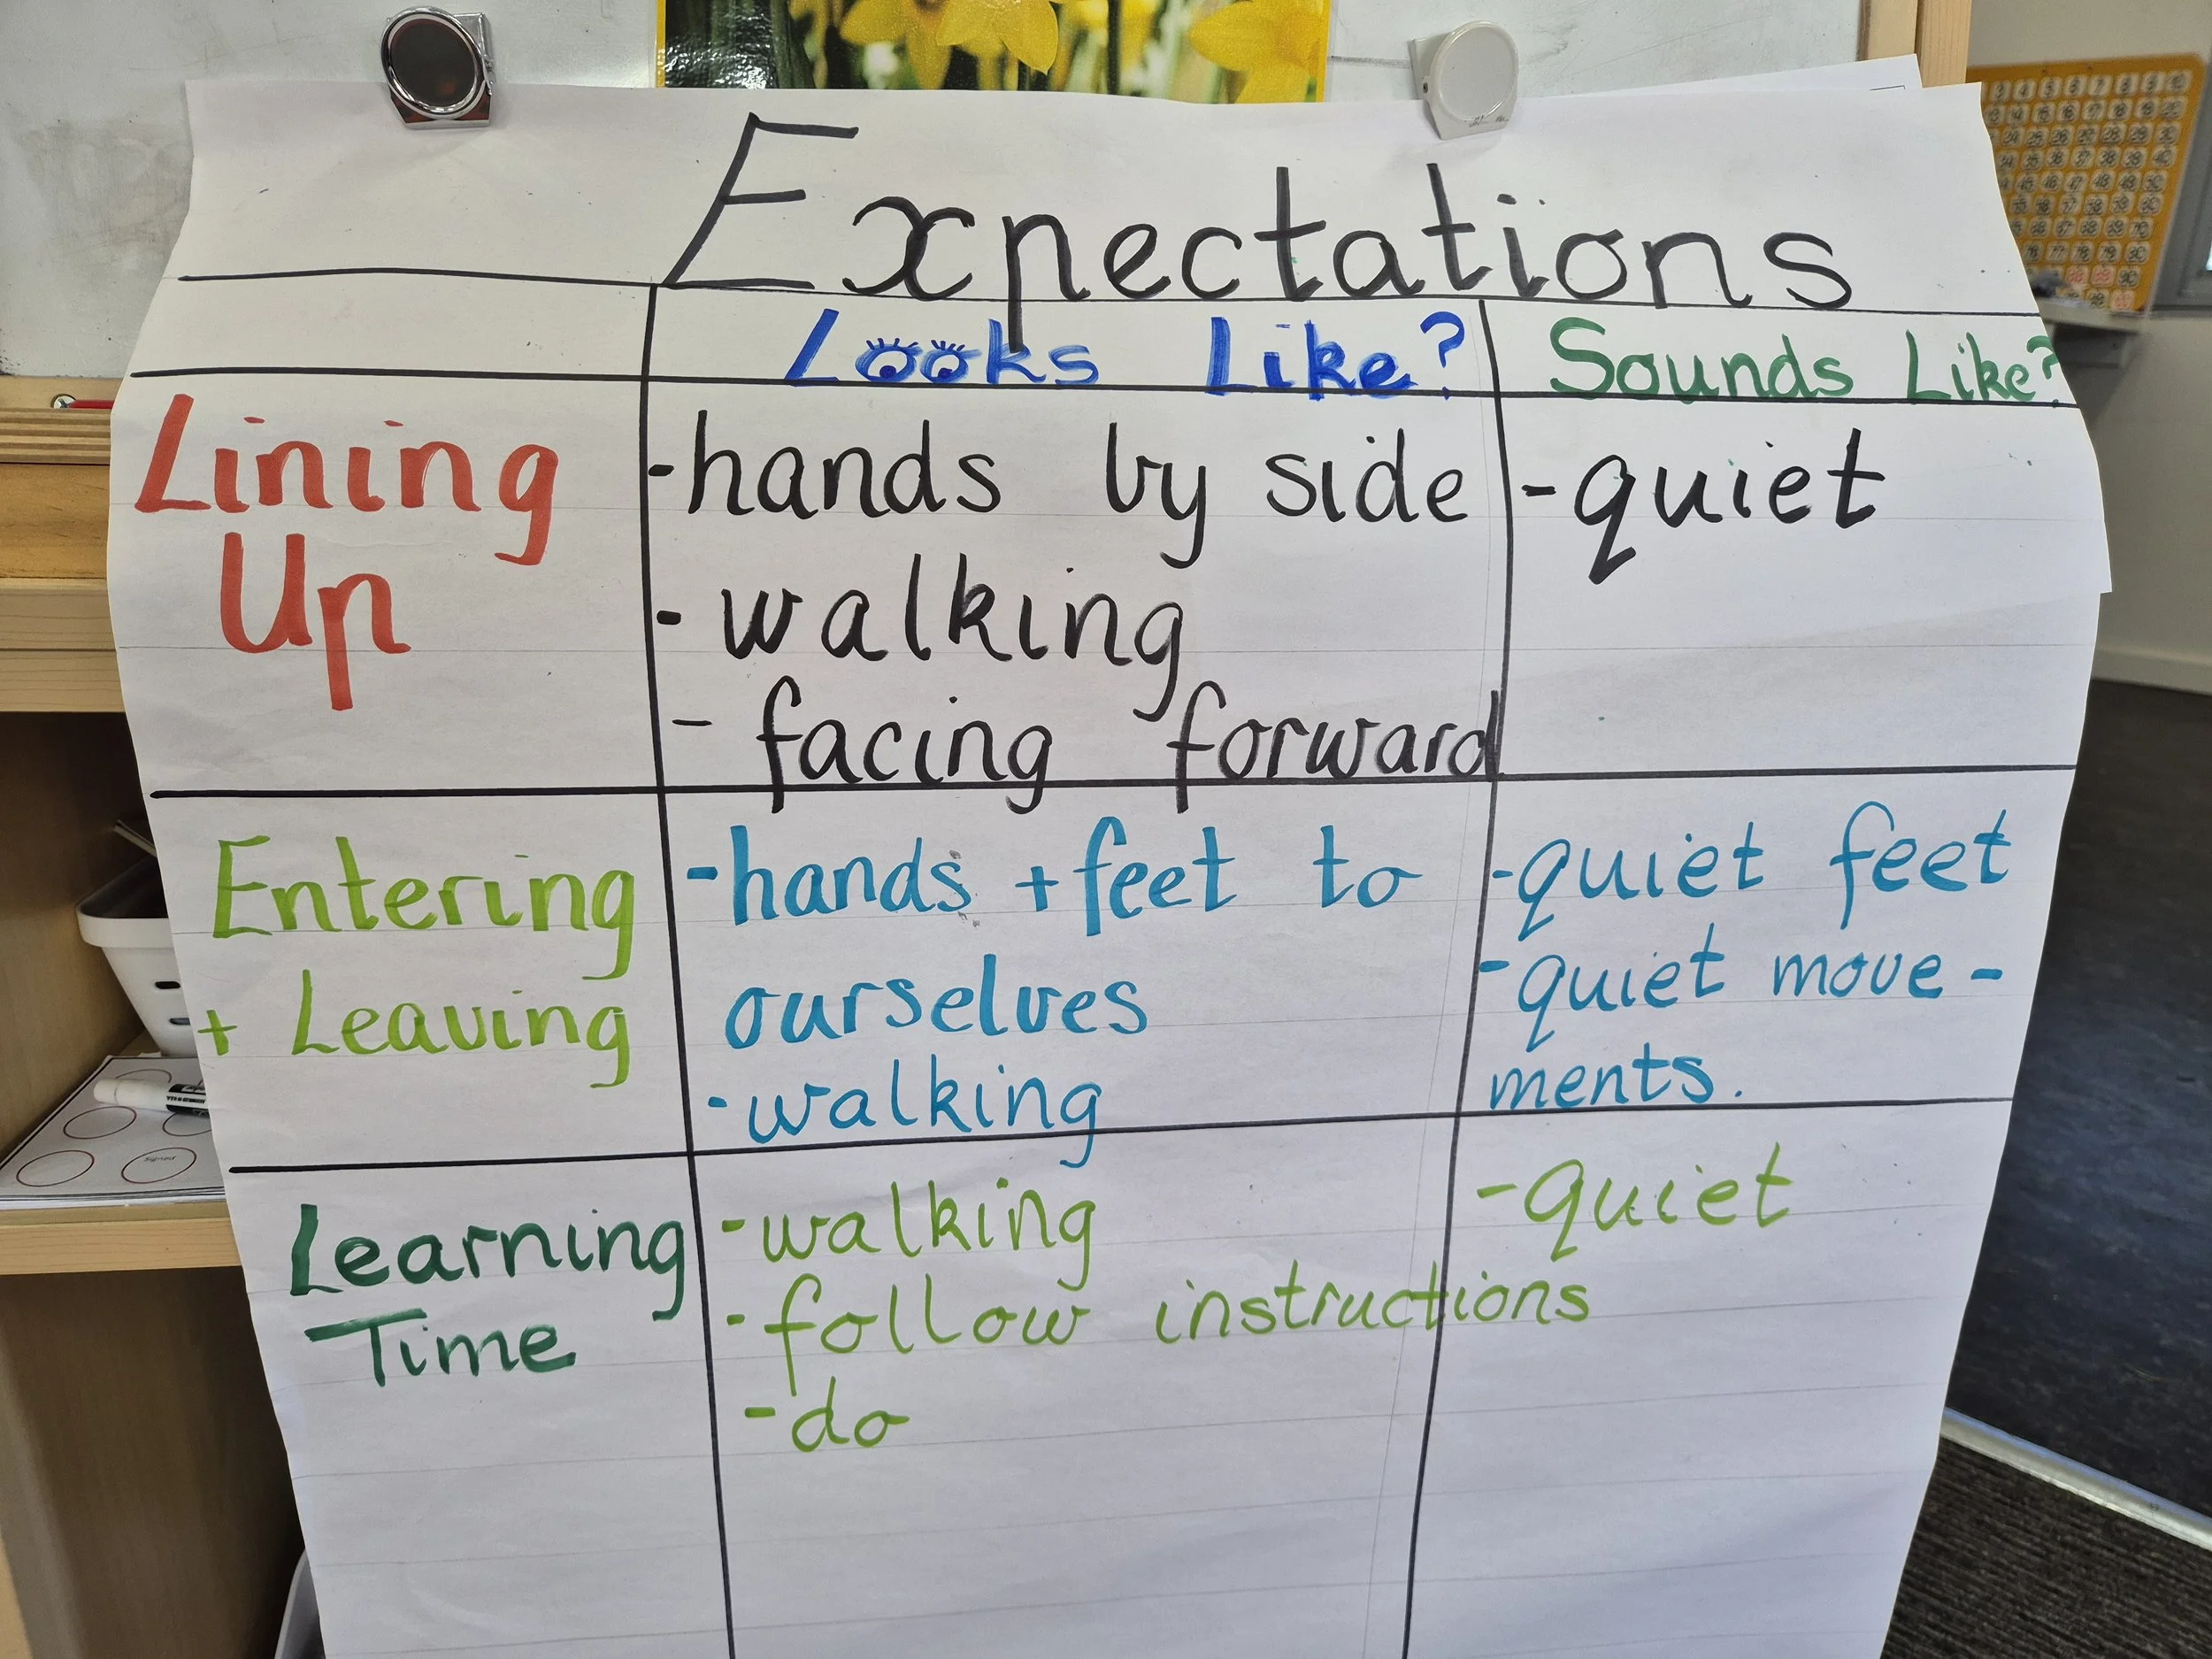 Expectations
Looks Like? Sounds Like?
Lining
Up
-hands by side
- walking
- facing forward
-quiet
Entering
+ Leaving
-hands + feet to
ourselves
-walking
-quiet feet
-quiet move-
ments.
Learning
Time
-walking
-follow instructions
-do
-quiet